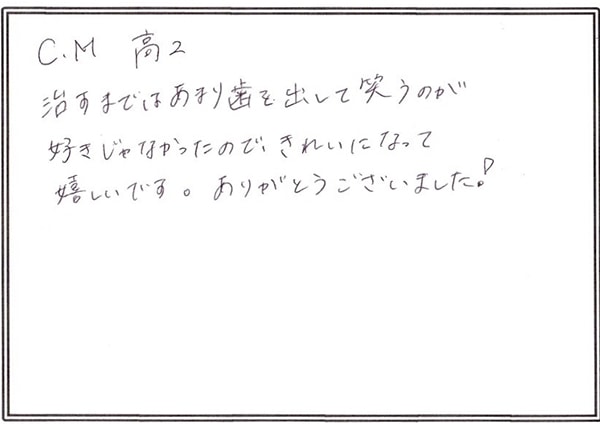 C.M 高2
治すまではあまり歯を出して笑うのが
好きじゃなかったので、きれいになって
嬉しいです。ありがとうございました!